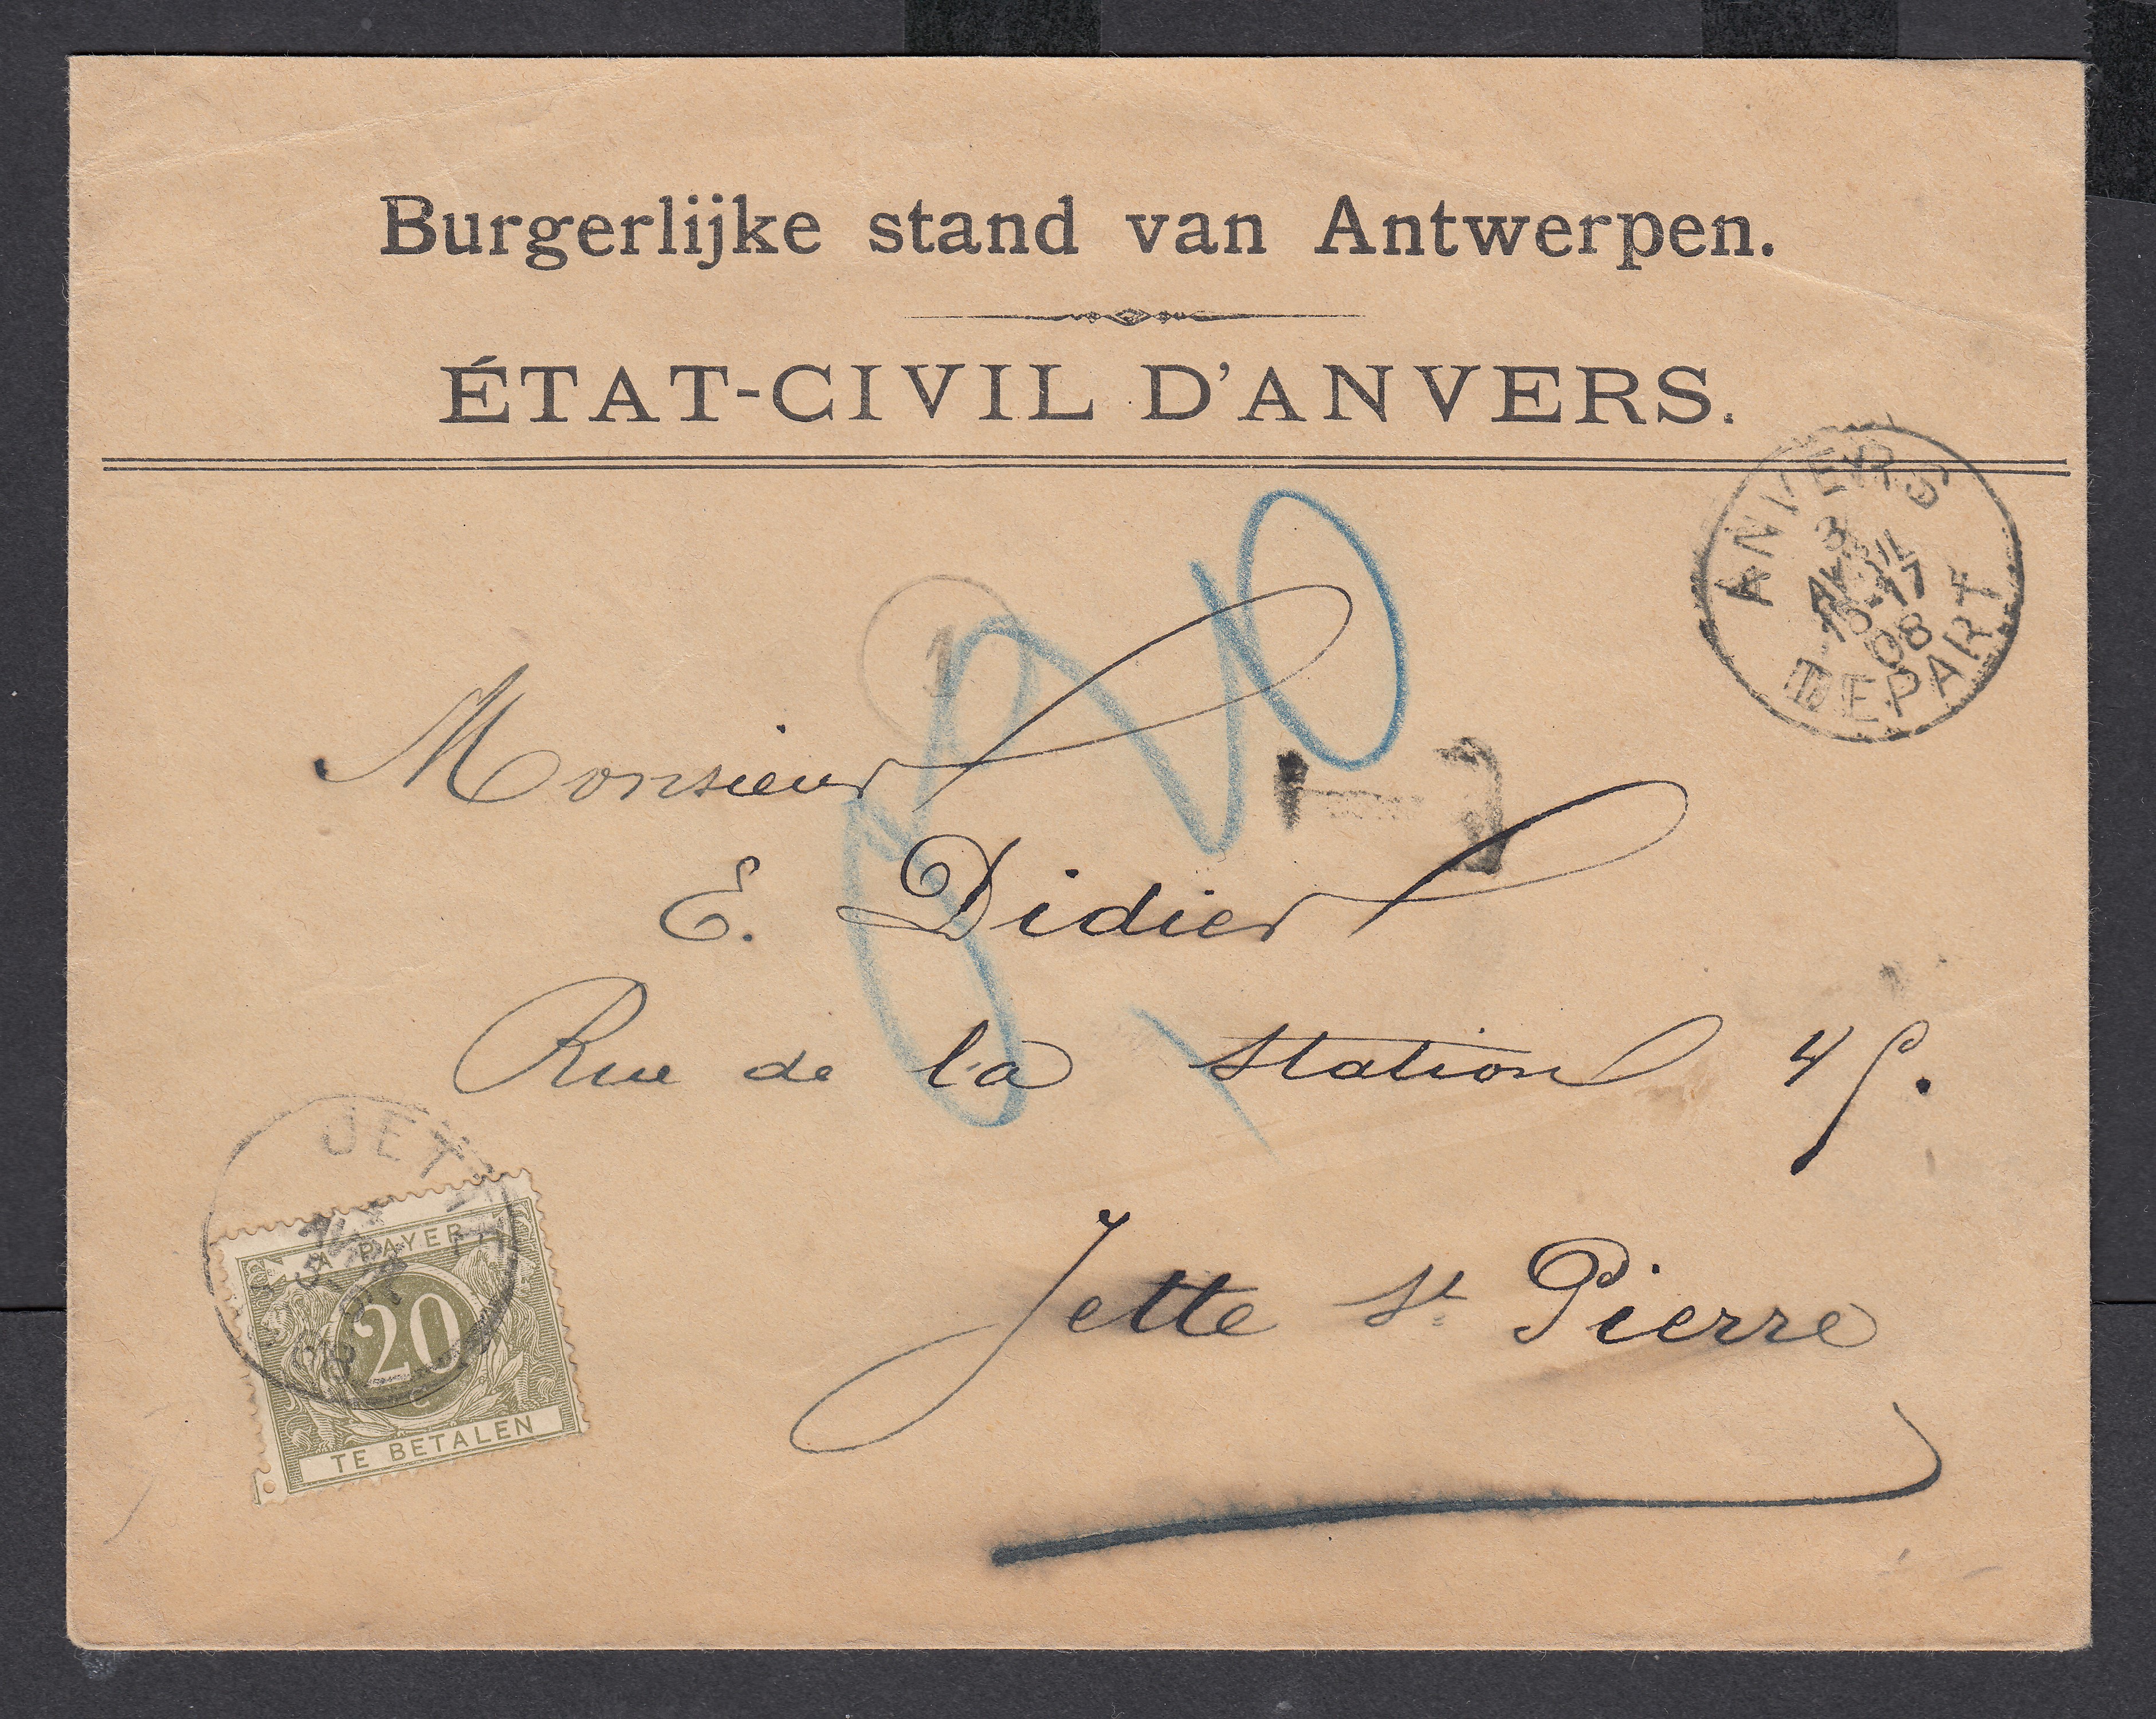 Burgerlijke stand van Antwerpen.
ÉTAT-CIVIL D'ANVERS.
ANVERS
3
AVRIL
16-17
08
DEPART
1
20
T
Monsieur
E. Didier
Rue de la Station 45.
Jette St Pierre
JETTE
08
A PAYER
20
TE BETALEN